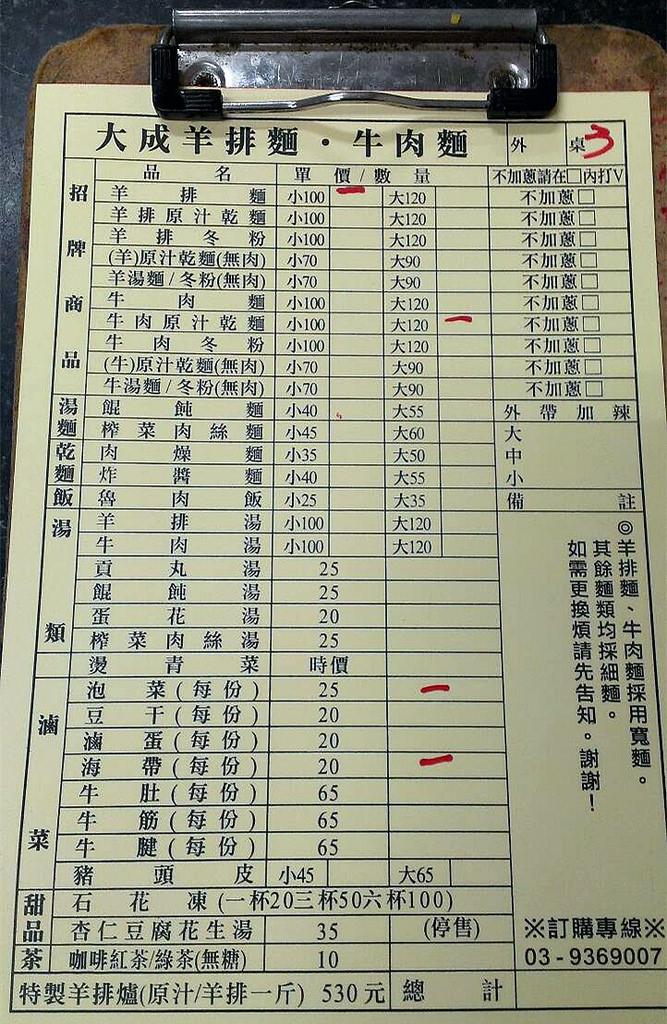 大成羊排麵·牛肉麵 外 桌 3
品名 單價/數量 不加蔥請在□內打V
招牌商品
羊排麵 小100 一 大120 不加蔥□
羊排原汁乾麵 小100 大120 不加蔥□
羊排冬粉 小100 大120 不加蔥□
(羊)原汁乾麵(無肉) 小70 大90 不加蔥□
羊湯麵/冬粉(無肉) 小70 大90 不加蔥□
牛肉麵 小100 大120 不加蔥□
牛肉原汁乾麵 小100 大120 一 不加蔥□
牛肉冬粉 小100 大120 不加蔥□
(牛)原汁乾麵(無肉) 小70 大90 不加蔥□
牛湯麵/冬粉(無肉) 小70 大90 不加蔥□
湯麵 餛飩麵 小40 大55 外帶加辣
榨菜肉絲麵 小45 大60 大
乾麵 肉燥麵 小35 大50 中
炸醬麵 小40 大55 小
飯 魯肉飯 小25 大35 備註
湯類
羊排湯 小100 大120
牛肉湯 小100 大120
貢丸湯 25
餛飩湯 25
蛋花湯 20
榨菜肉絲湯 25
燙青菜 時價
◎羊排麵、牛肉麵採用寬麵。
其餘麵類均採細麵。
如需更換煩請先告知。謝謝!
滷菜
泡菜(每份) 25 一
豆干(每份) 20
滷蛋(每份) 20
海帶(每份) 20 一
牛肚(每份) 65
牛筋(每份) 65
牛腱(每份) 65
豬頭皮 小45 大65
甜品 石花凍(一杯20三杯50六杯100)
杏仁豆腐花生湯 35 (停售)
茶 咖啡紅茶/綠茶(無糖) 10
※訂購專線※
03-9369007
特製羊排爐(原汁/羊排一斤) 530元 總計